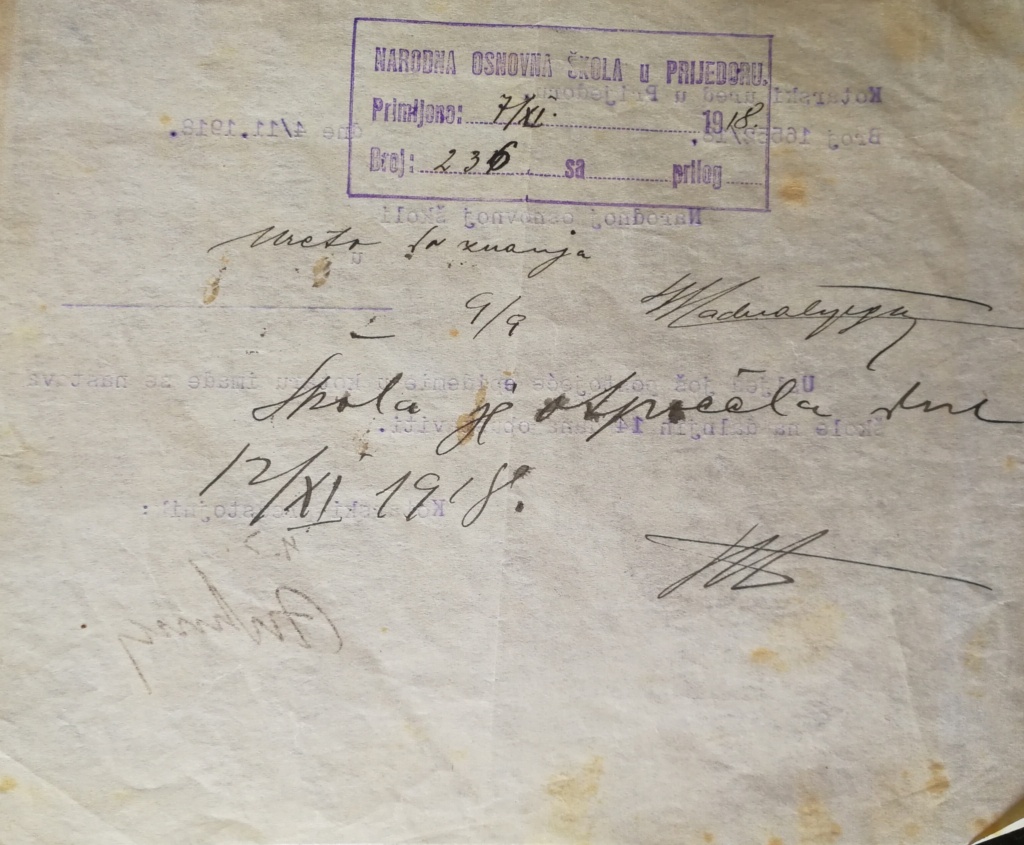 NARODNA OSNOVNA ŠKOLA u PRIJEDORU.
Primljeno: 7/XI. 1918.
Broj: 236 sa prilog
Kotarski ured u Prijedoru
Broj dne 4/11.1918.
Narodnoj osnovnoj školi
u
znanja
9/9
Uslijed još postojeće epidemije u kotaru imade se nastava
škole na daljnjih 14 dana obustaviti.
Škola je otpočela dne
12/XI 1918.
Kotarski predstojnik: